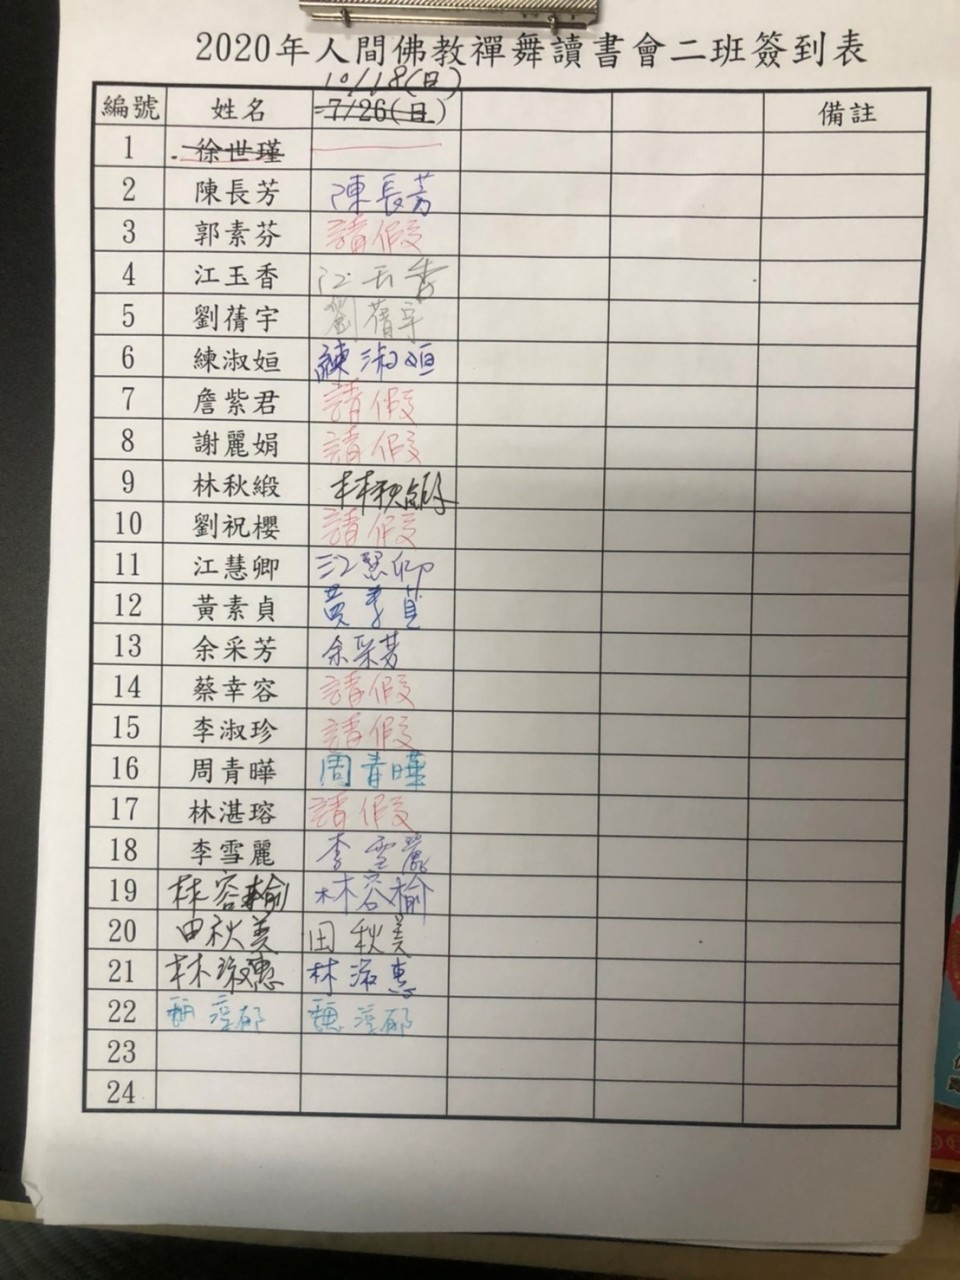 2020年人間佛教禪舞讀書會二班簽到表
10/18(日)
編號 姓名 7/26(日) 備註
1 徐世瑾
2 陳長芳 陳長芳
3 郭素芬 請假
4 江玉香 江玉香
5 劉蒨宇 劉蒨宇
6 練淑姮 練淑姮
7 詹紫君 請假
8 謝麗娟 請假
9 林秋緞 林秋緞
10 劉祝櫻 請假
11 江慧卿 江慧卿
12 黃素貞 黃素貞
13 余采芳 余采芳
14 蔡幸容 請假
15 李淑珍 請假
16 周青曄 周青曄
17 林湛瑢 請假
18 李雪麗 李雪麗
19 林容榆 林容榆
20 田秋美 田秋美
21 林淑惠 林淑惠
22
23
24